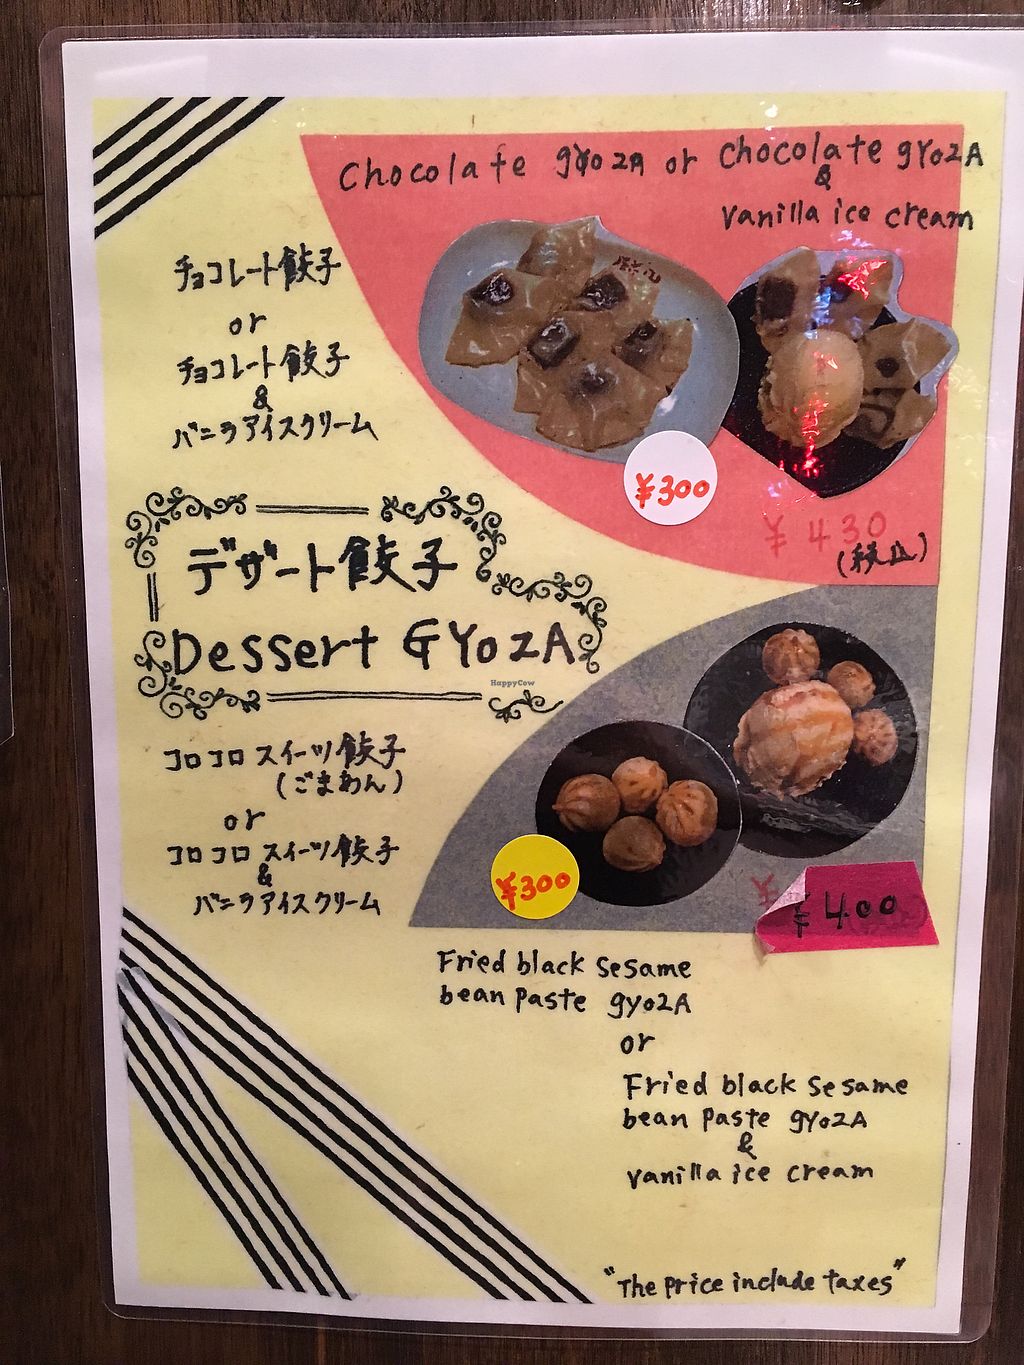 Chocolate gyozA or chocolate gyozA
&
vanilla ice cream
チョコレート餃子
or
チョコレート餃子
&
バニラアイスクリーム
¥300
¥430
(税込)
デザート餃子
Dessert GYozA
HappyCow
コロコロ スイーツ餃子
(ごまあん)
or
コロコロ スイーツ餃子
&
バニラアイスクリーム
¥300
¥
¥400
Fried black sesame
bean paste gyozA
or
Fried black sesame
bean paste gyozA
&
vanilla ice cream
"The price include taxes"